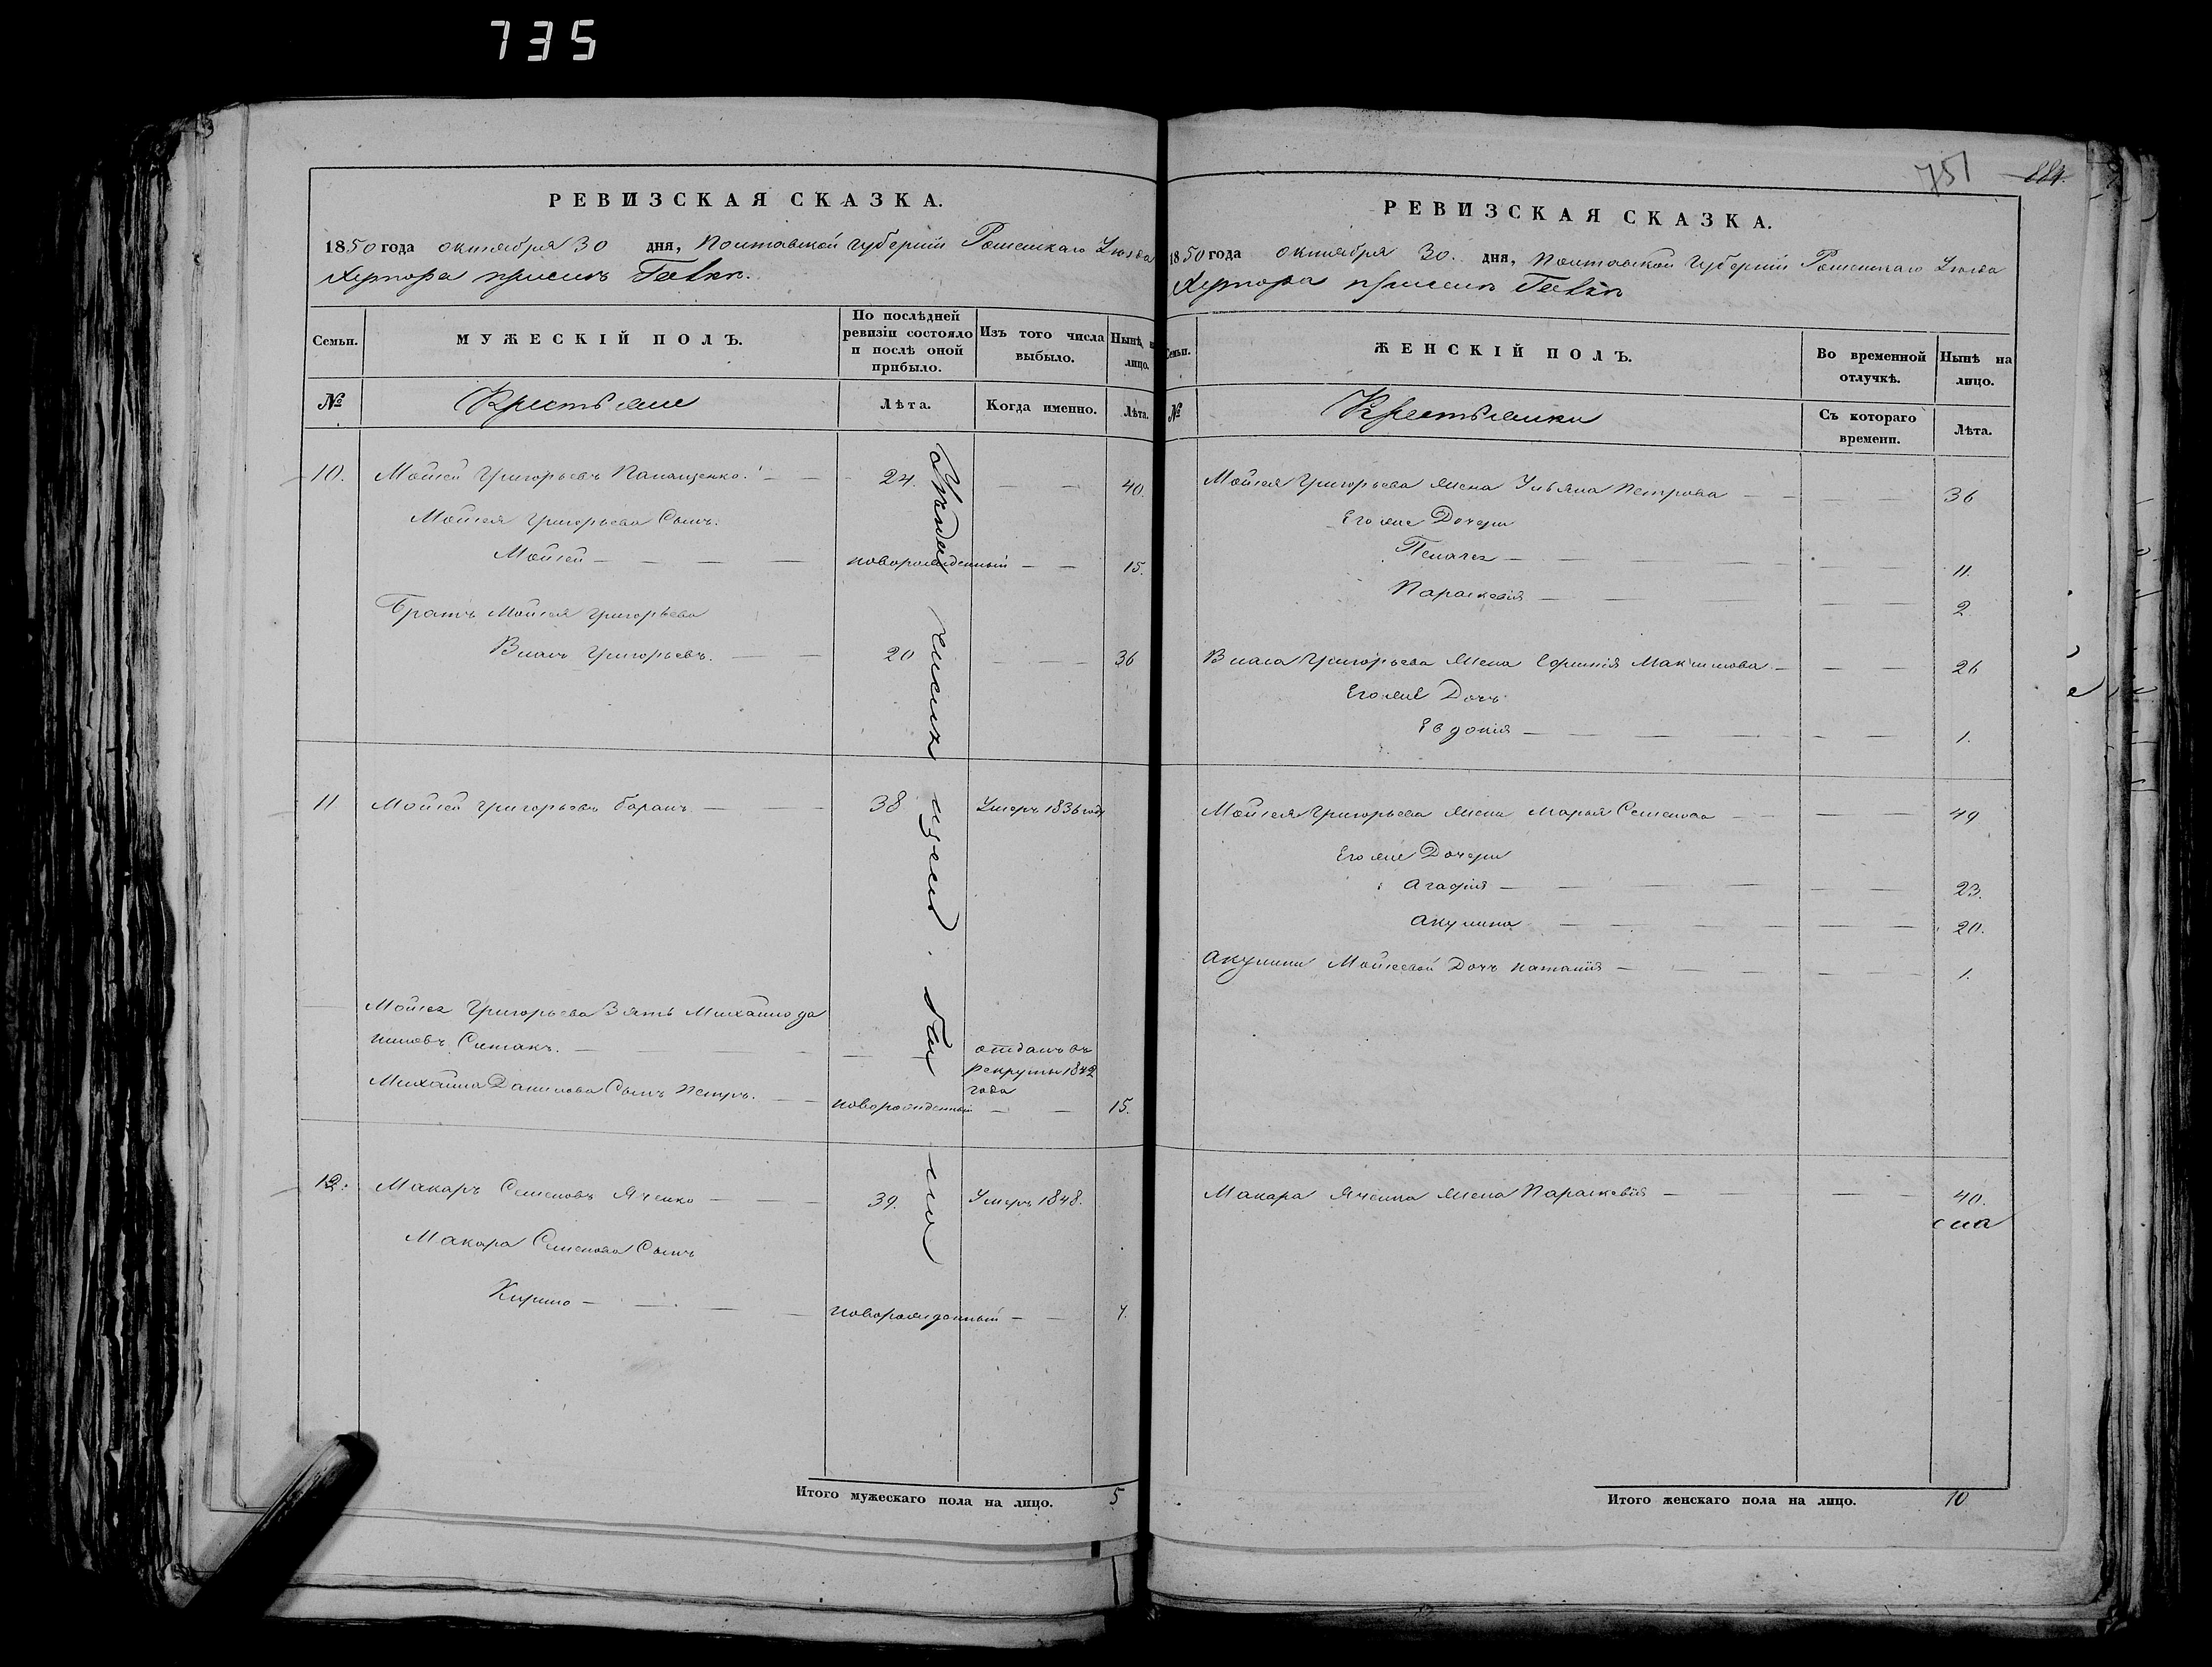 735
РЕВИЗСКАЯ СКАЗКА.
1850 года октября 30 дня, Полтавской губернии Роменскаго Уезда
Хутора при селе
Семьи.
МУЖЕСКІЙ ПОЛЪ.
По послѣдней ревизіи состояло и послѣ оной прибыло.
Изъ того числа выбыло.
Нынѣ на лицо.
№
Крестьяне
Лѣта.
Когда именно.
Лѣта.
10. Мойсей Григорьевъ 24. 40.
Мойсея Григорьева Сынъ.
Мойсей новорожденный 15.
Братъ Мойсея Григорьева
Власъ Григорьевъ. 20 36
11 Мойсей Григорьевъ Баранъ 38 Умеръ 1836 году
Мойсея Григорьева Зять Михайло Да
ниловъ отданъ въ
рекруты 1842
года
Михайла Данилова Сынъ Петръ. новорожденный 15.
12. Макаръ Семеновъ Яченко 39. Умеръ 1848.
Макара Семенова Сынъ
Кирило новорожденный 4.
Итого мужескаго пола на лицо. 5
751
884.
РЕВИЗСКАЯ СКАЗКА.
1850 года октября 30. дня, Полтавской Губерніи Роменскаго Уезда
Хутора при селе
Семьи.
ЖЕНСКІЙ ПОЛЪ.
Во временной отлучкѣ.
Нынѣ на лицо.
№
Крестьянки
Съ котораго времени.
Лѣта.
Мойсея Григорьева жена Ульяна Петрова 36
Его же Дочери
Пелагея 11.
Параскевія 2.
Власа Григорьева жена Максимова 26
Его же Дочь
Евдокія 1.
Мойсея Григорьева жена Марья Семенова 49
Его же Дочери
Агафія 23.
Акулина 20.
Акулины Мойсеевой Дочь Наталія 1.
Макара Яченка жена Параскевія 40.
Итого женскаго пола на лицо. 10